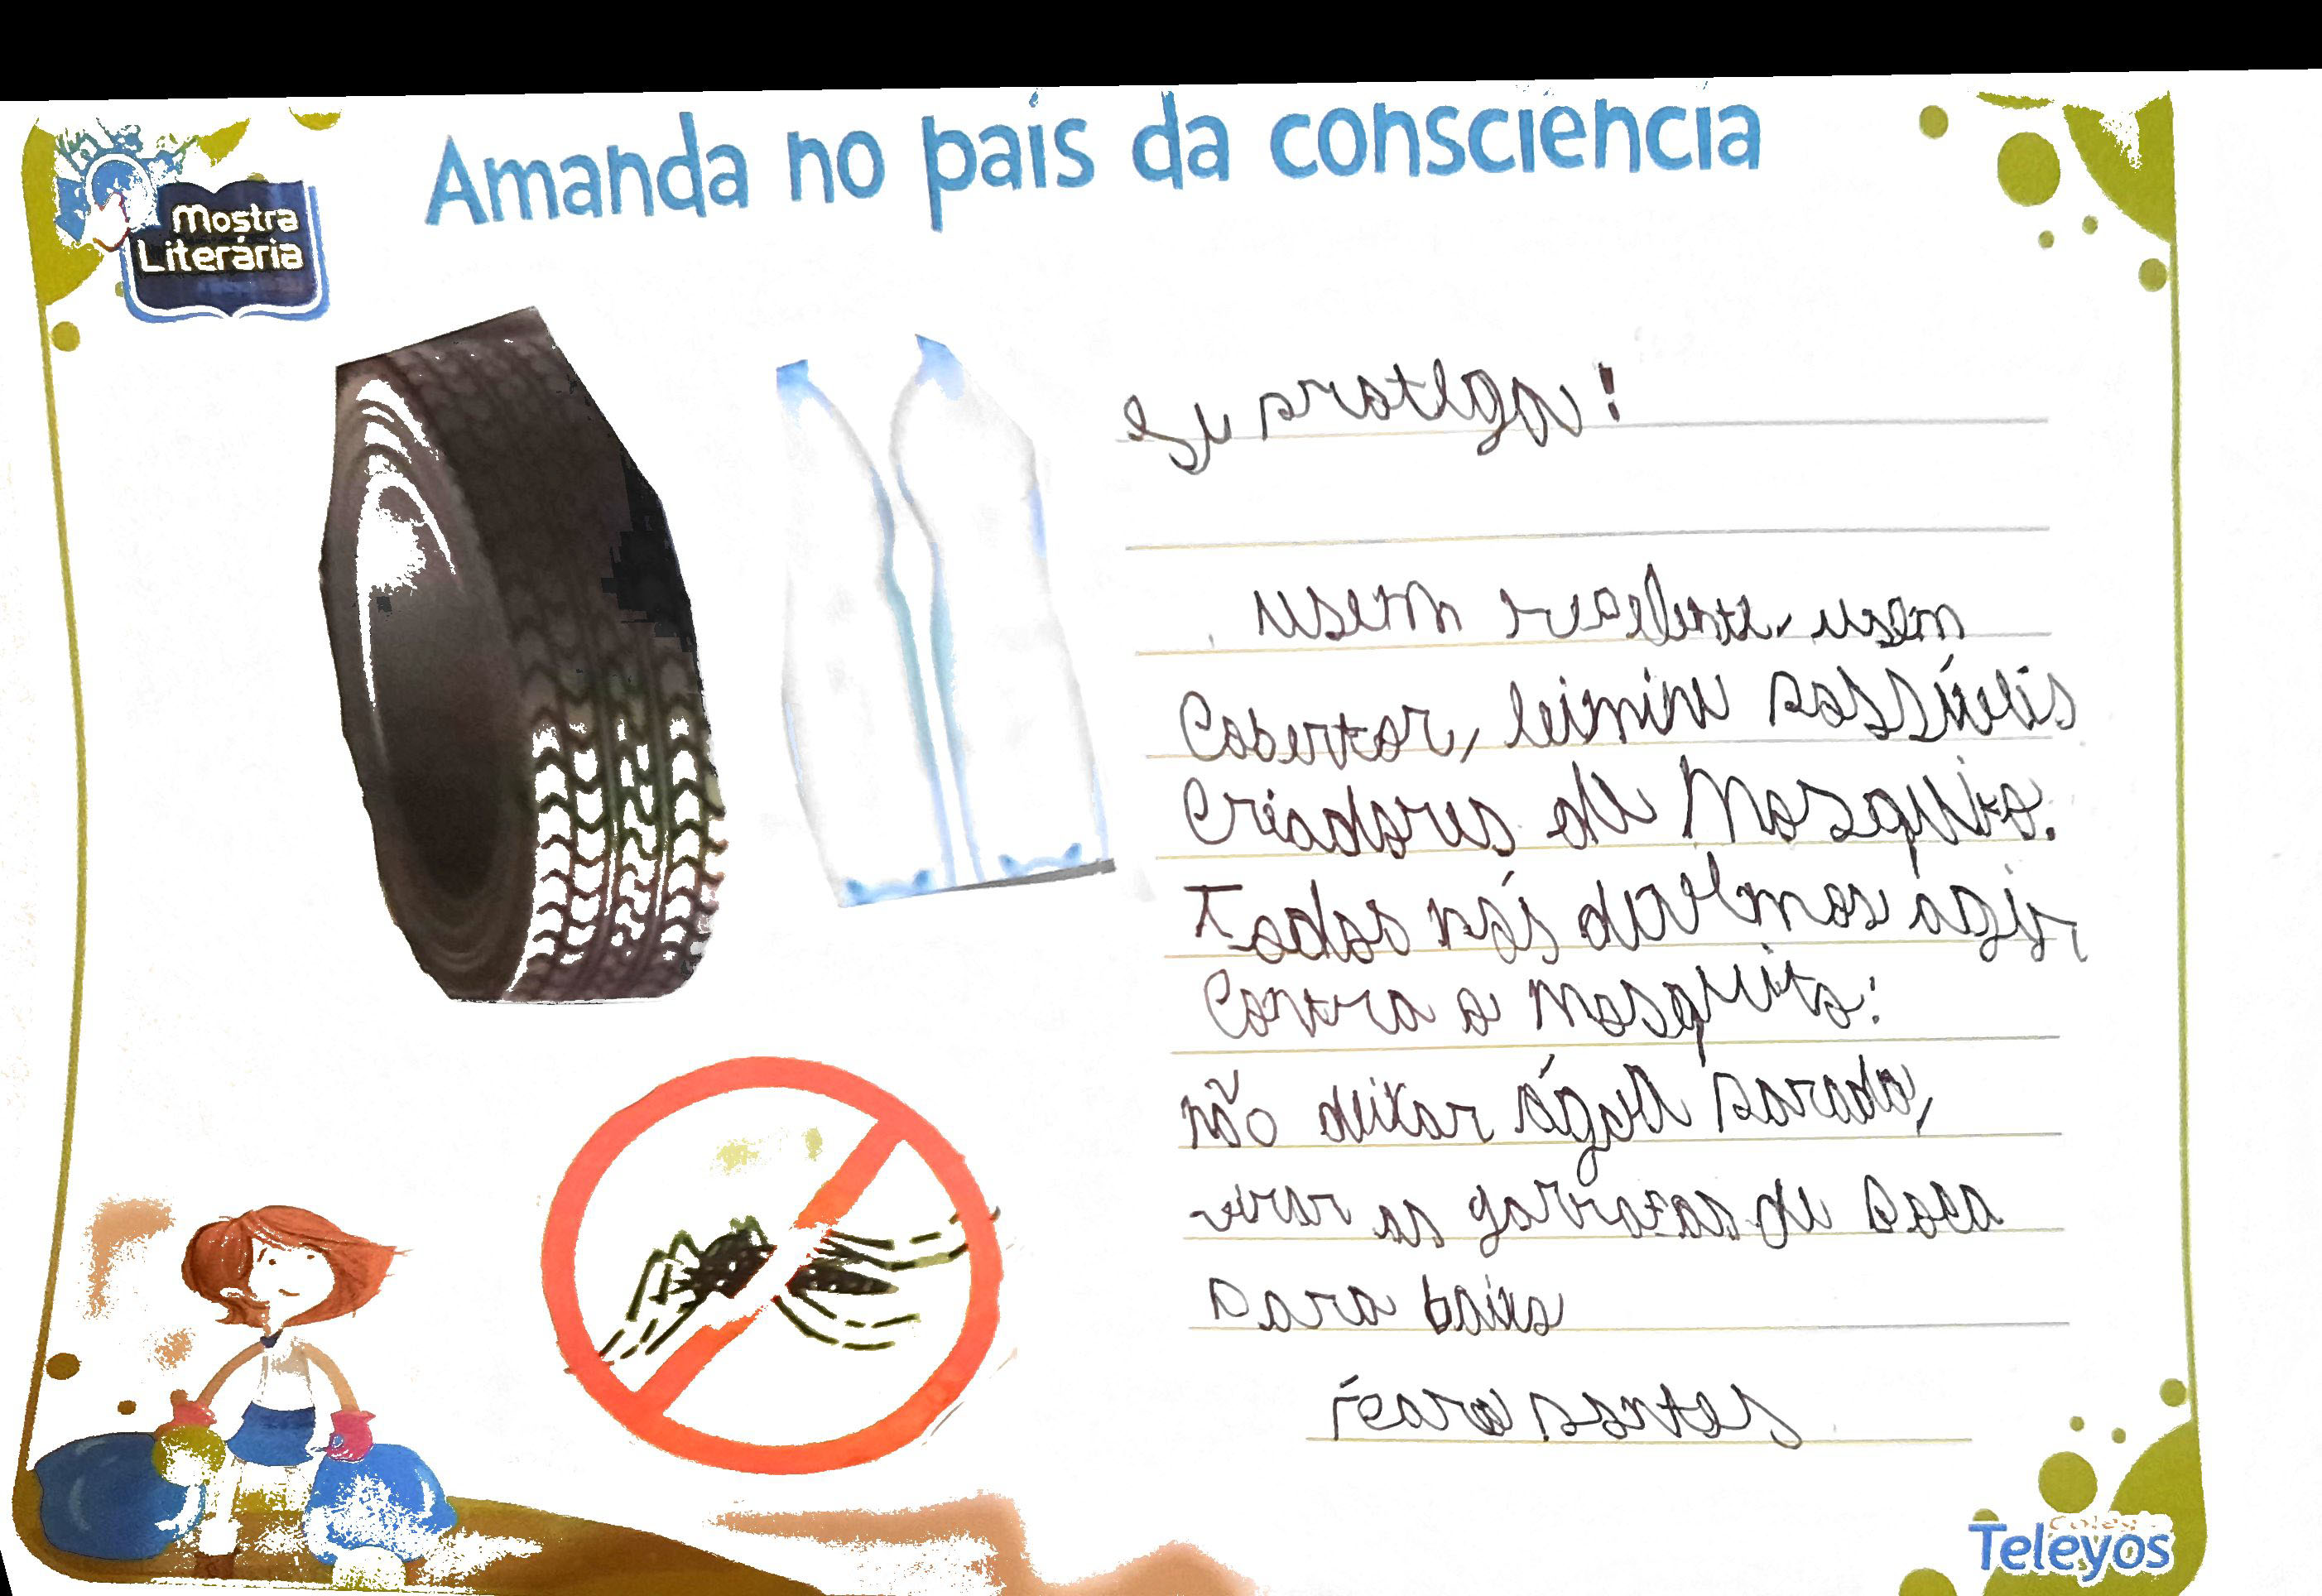 Amanda no país da consciencia
Mostra
Literária
Se proteja!
usem repelente, usem
Cobertor, leimine possíveis
Criadores de Mosquito.
Todos nós devemos agir
Contra o mosquito:
não deixar água parada,
virar as garrafas de boca
para baixo
ícaro santos
Teleyos